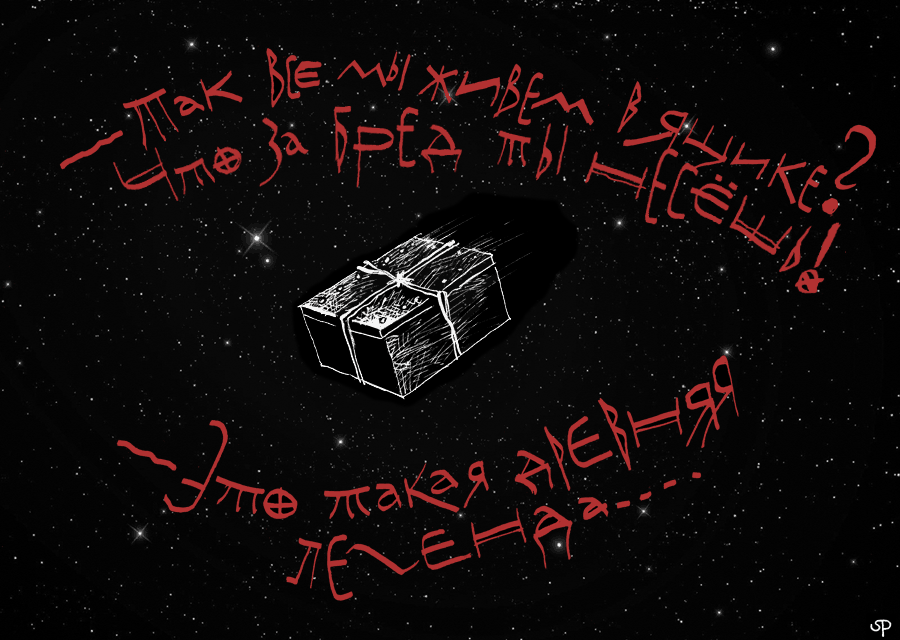 — Так все мы живем в ящике?
Что за бред ты несёшь!
— Это такая древняя
легенда.....
SP